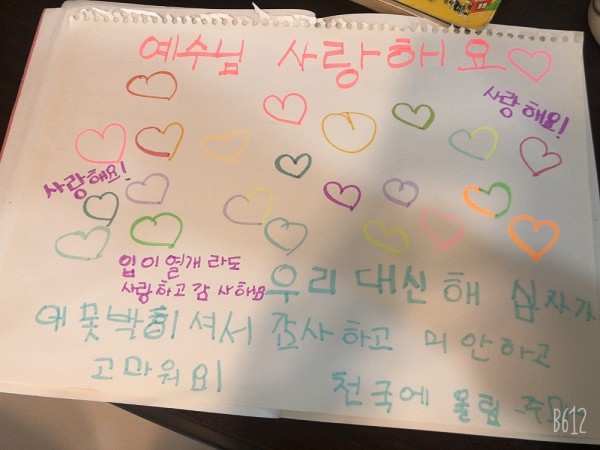 예수님 사랑해요♡
사랑해요!
사랑해요!
입이열개라도
사랑하고감사해요
우리 대신해 십자가
에 못박히셔서 감사하고 미안하고
고마워요!
천국에 올림
B612